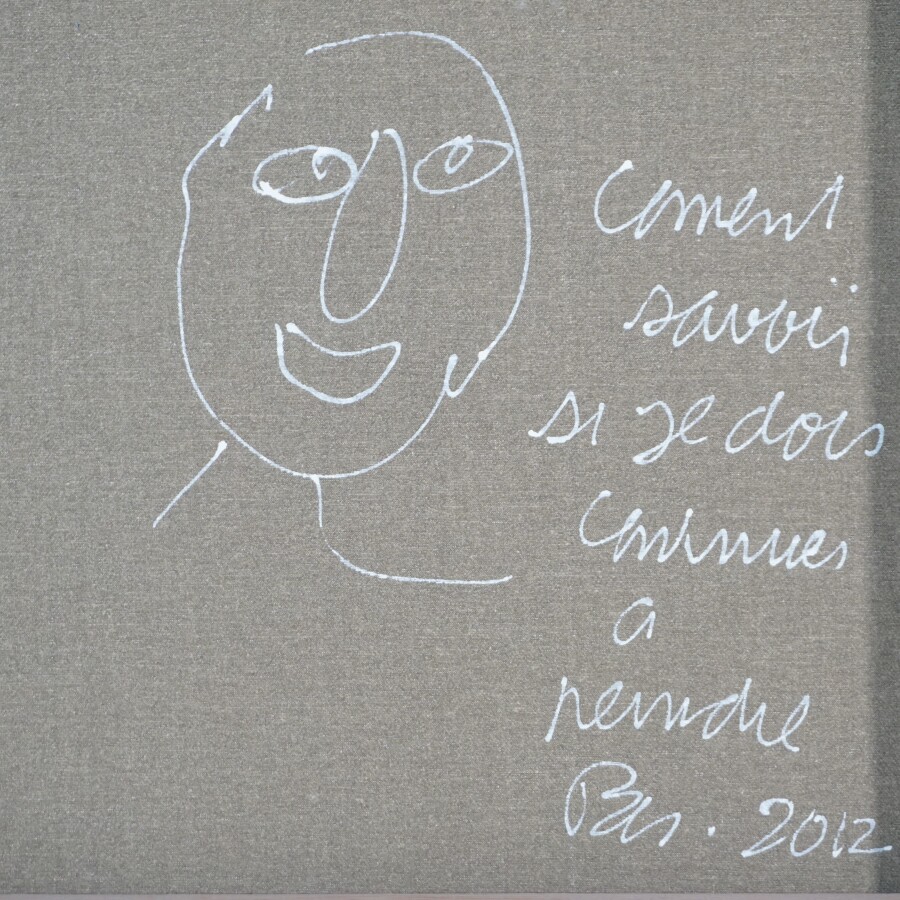 Coment
savoir
si je dois
continuer
a
peindre
Ben. 2012